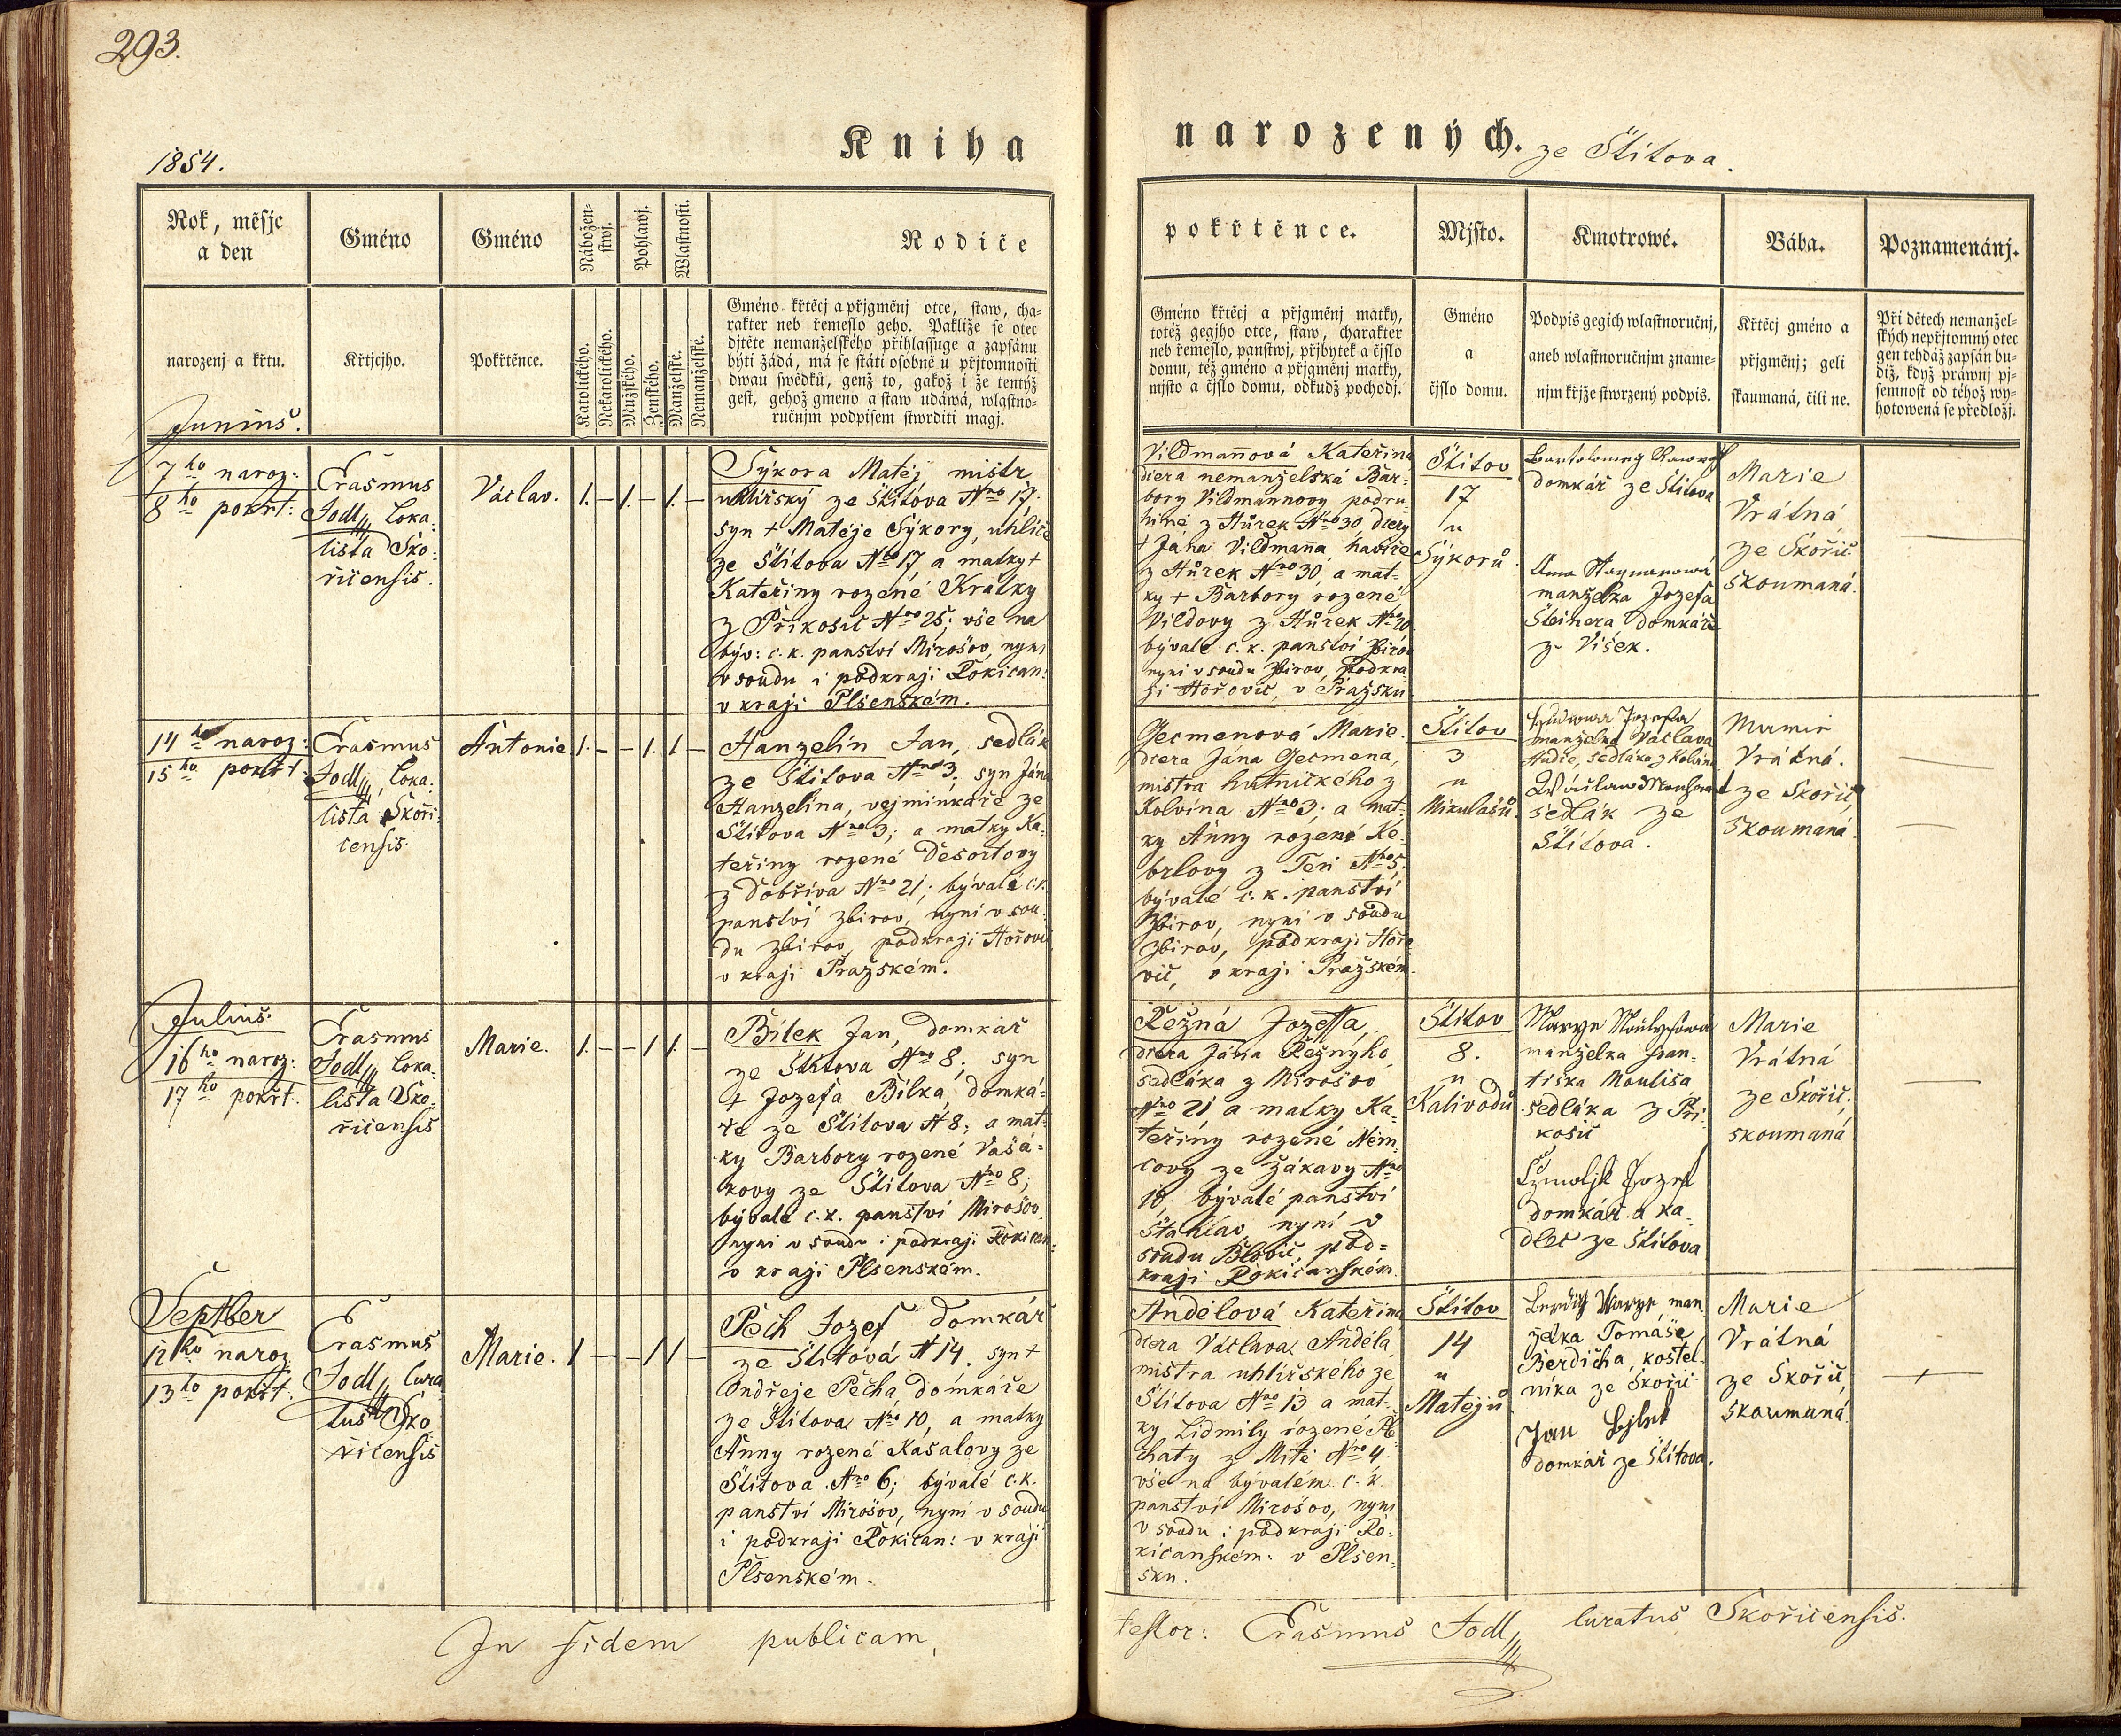 293.
Kniha
narozených. ze Štítova.
1854.
Rok, měsjc
a den
Gméno
Gméno
Nábožen-
stwj.
Pohlawj.
Wlastnosti.
Rodiče
pokřtěnce.
Mjsto.
Kmotrowé.
Bába.
Poznamenánj.
narozenj a křtu.
Křtjcjho.
Pokřtěnce.
Katolického.
Nekatolického.
Mužského.
Ženského.
Manželské.
Nemanželské.
Gméno křtěcj a přjgměnj otce, staw, cha-
rakter neb řemeslo geho. Pakliže se otec
djtěte nemanželského přihlassuge a zapsánu
býti žádá, má se státi osobně u přjtomnosti
dwau swědků, genž to, gakož i že tentýž
gest, gehož gmeno a staw udáwá, wlastno-
ručnjm podpisem stwrditi magj.
Gméno křtěcj a přjgměnj matky,
totéž gegjho otce, staw, charakter
neb řemeslo, panstwj, přjbytek a čjslo
domu, též gméno a přjgměnj matky,
mjsto a čjslo domu, odkudž pocházj.
Gméno
a
čjslo domu.
Podpis gegich wlastnoručnj,
aneb wlastnoručnjm zname-
njm křjže stwrzený podpis.
Křtěcj gméno a
přjgměnj; geli
skaumaná, čili ne.
Při dětech nemanžel-
ských nepřjtomný otec
gen tehdáž zapsán bu-
diž, když práwnj pj-
semnost od téhož wy-
hotowená se předložj.
Junius.
7ho naroz:
8ho pokřt:
Erasmus
Jodl, Loka-
lista Sko-
řicensis.
Václav.
1. – 1. – 1. –
Sýkora Matěj mistr
uhlířský ze Štítova Nro 17.
syn + Matěje Sýkory, uhlíře
ze Štítova Nro 17, a matky +
Kateřiny rozené Krátky
z Příkosic Nro 25; vše na
býv: c. k. panství Mirošov, nyní
v soudu i podkraji Rokican:
v kraji Plsenském.
Vildmannová Kateřina
dcera nemanželská Bar-
bory Vildmannovy podru-
hině z Hůrek Nro 30 dcery
+ Jána Vildmanna havíře
z Hůrek Nro 30, a mat-
ky + Barbory rozené
Vildovy z Hůrek Nro 20
bývalé c. k. panství Zbirov
nyní v soudu Zbirov, podkra
ji Hořovic, v Pražsku
Štítov
17
u
Sýkorů.
domkář ze Štítova
manželka Jozefa
Šteinera domkáře
z Víšek.
Marie
Vrátná
ze Skořic
skoumaná.
14ho naroz:
15ho pokřt.
Erasmus
Jodl, Loka-
lista Skoři-
censis.
Antonie
1. – – 1. 1 –
Hanzelín Jan, sedlák
ze Štítova Nro 3, syn Jána
Hanzelína, vejminkáře ze
Štítova Nro 3; a matky Ka-
teřiny rozené Desortovy
z Dobříva Nro 21; bývalé c. k.
panství Zbirov, nyní v sou-
du Zbirov, podkraji Hořovic
v kraji Pražském.
Germenová Marie
dcera Jána Germena,
mistra hutnického z
Kolvína Nro 3; a mat-
ky Anny rozené Ke-
brlovy z Těň Nro 5;
bývalé c. k. panství
Zbirov, nyní v soudu
Zbirov, podkraji Hořo
vic, v kraji Pražském.
Štítov
3
u
Mikulašů.
Jozefa
manželka Václava
Hudie, sedláka z Kolvína
sedlák ze
Štítova.
Vrátná.
ze Skořic,
skoumaná.
Julius.
16ho naroz:
17ho pokřt.
Erasmus
Jodl, Loka-
lista Sko-
řicensis
Marie.
1. – – 1 1. –
Bílek Jan, domkář
ze Štítova Nro 8, syn
+ Jozefa Bílka, domká-
ře ze Štítova N 8; a mat-
ky Barbory rozené Vašá-
kovy ze Štítova Nro 8;
bývalé c. k. panství Mirošov
nyní v soudu i podkraji Rokican:
v kraji Plsenském.
Řežná Jozeffa,
dcera Jána Řežnýho,
sedláka z Mirošov
Nro 21 a matky Ka-
teřiny rozené Něm-
covy ze Žákavy Nro
10. bývalé panství
Šťáhlav nyní v
soudu Blovic, pod-
kraji Rokicanském.
Štítov
8.
u
Kalivodů
manželka Fran-
tiška Mouliša
sedláka z Pří-
kosic
domkář a ka-
dlec ze Štítova
Marie
Vrátná
ze Skořic.
skoumaná
Septber
12ho naroz
13ho pokřt.
Erasmus
Jodl, Cura
tus Sko
řicensis
Marie.
1 – – 1 1 –
Pěch Jozef domkář
ze Štítova N 14. syn +
Ondřeje Pěcha, domkáře
ze Štítova Nro 10, a matky
Anny rozené Kašalovy ze
Štítova Nro 6; bývalé c. k.
panství Mirošov, nyní v soudu
i podkraji Rokican: v kraji
Plsenském.
Andělová Kateřina
dcera Václava Anděla,
mistra uhlířského ze
Štítova Nro 13 a mat-
ky Lidmily rozené Pě-
chaty z Mítě Nro 4.
vše na bývalém c. k.
panství Mirošov, nyní
v soudu i podkraji Ro-
kicanském: v Plsen-
sku.
Štítov
14
u
Matějů
Berdich Marye man-
želka Tomáše
Berdicha, kostel-
níka ze Skořic
Jan Bjlek
domkář ze Štítova.
Marie
Vrátná
ze Skořic,
skoumaná.
In fidem publicam,
testor: Erasmus Jodl, Curatus Skořicensis.